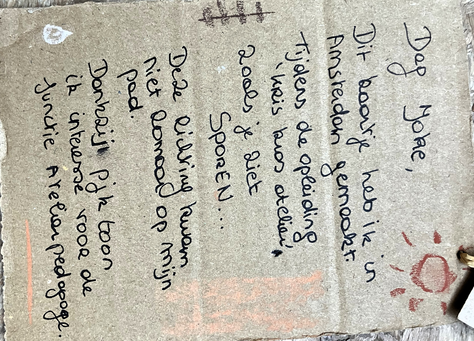 Dag Joke,
Dit kaartje heb ik in
Amsterdam gemaakt.
Tijdens de opleiding
'kris kras atelier'
zoals je ziet
SPOREN...
Deze richting kwam
niet toevallig op mijn
pad.
Dankzij Pijk toon
ik interesse voor de
functie Atelierpedagoge.